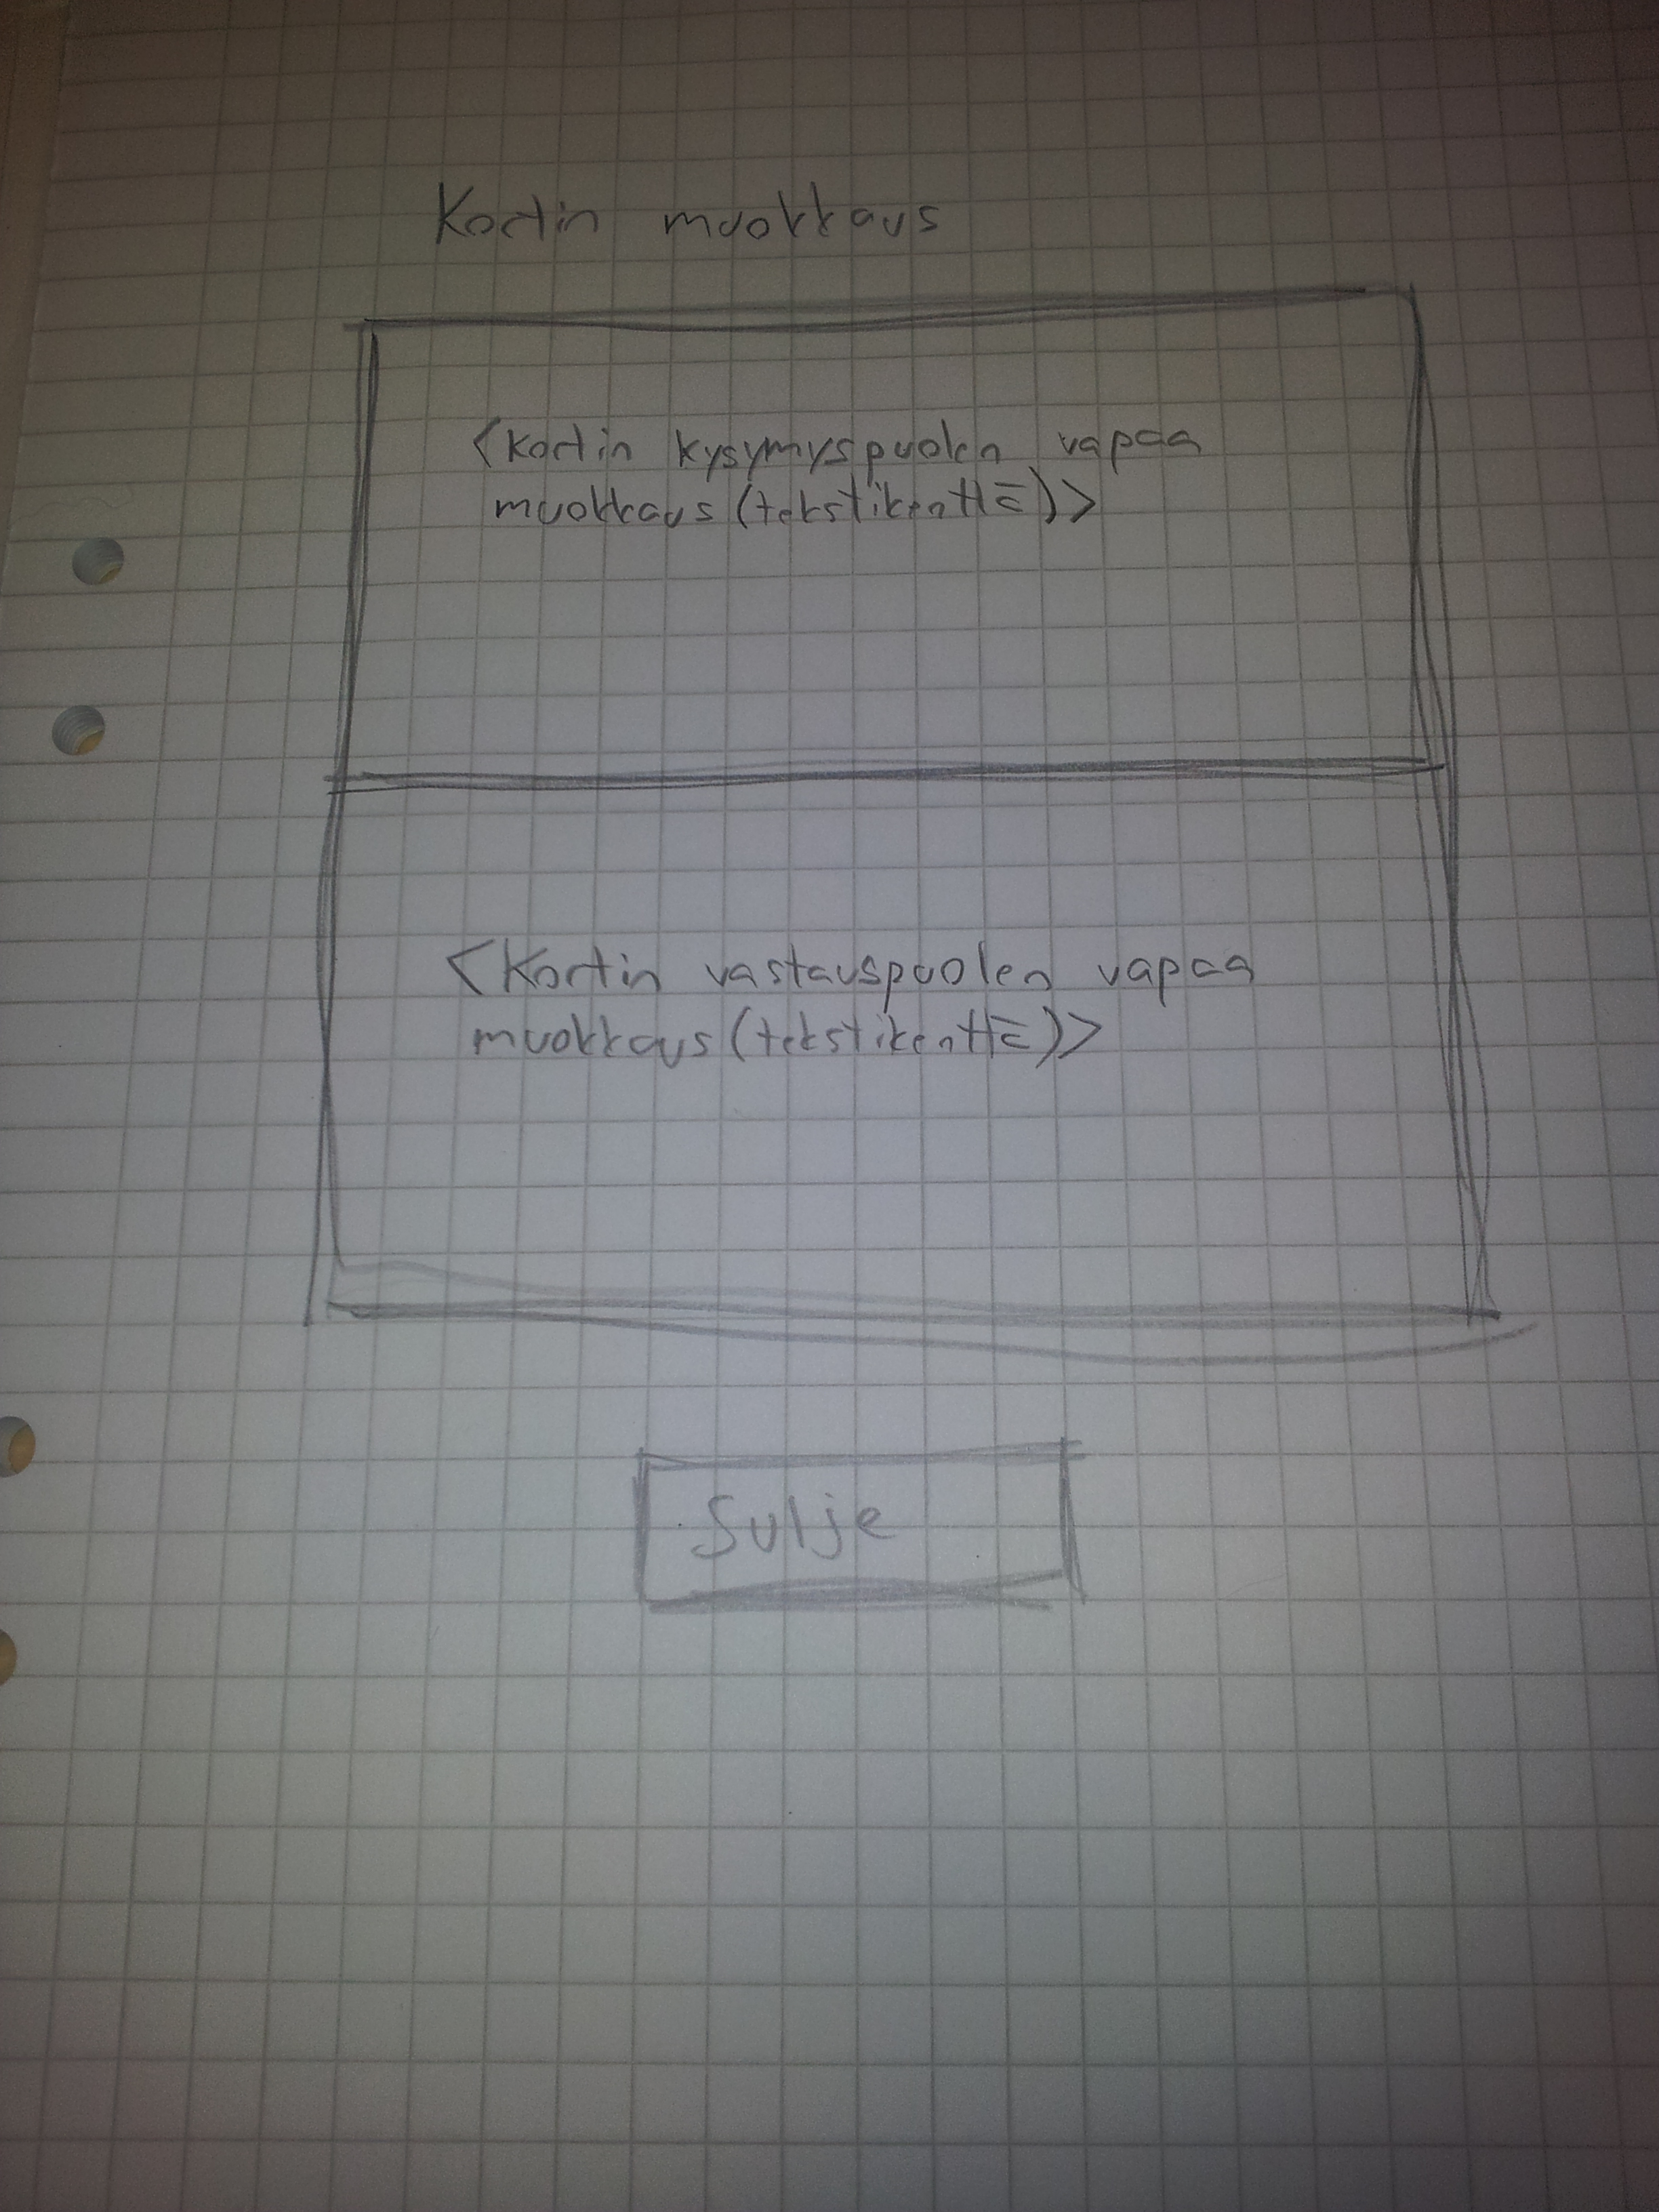 Kortin muokkaus
<Kortin kysymyspuolen vapaa
muokkaus (tekstikenttä)>
<Kortin vastauspuolen vapaa
muokkaus (tekstikenttä)>
Sulje